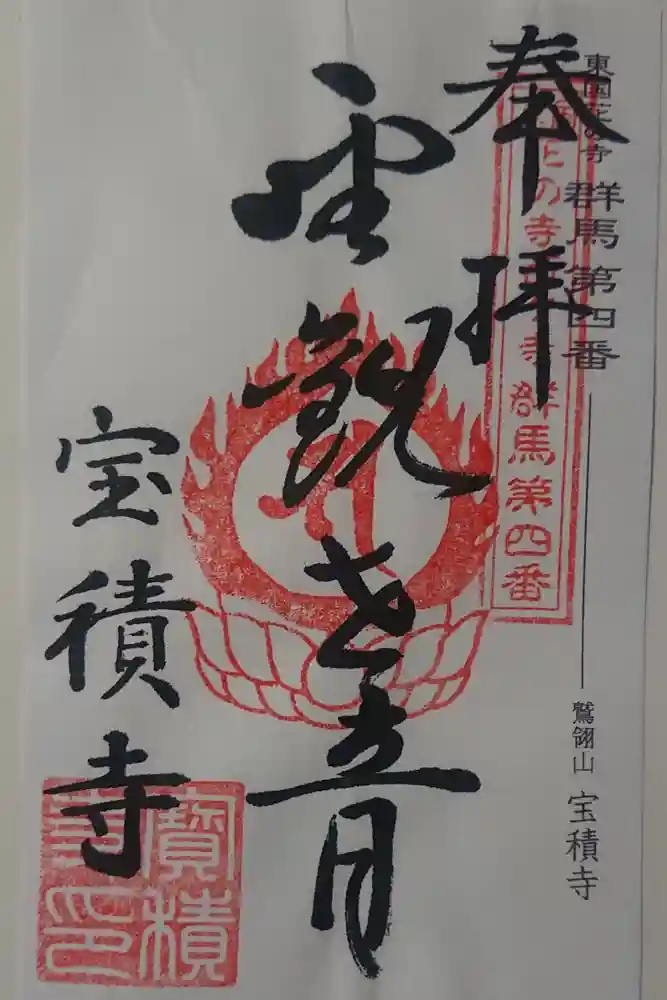 東国花の寺 群馬第四番 鷲翎山 宝積寺
奉拝
の寺 寺 群馬第四番
聖観世音
宝積寺
寶積
寺印